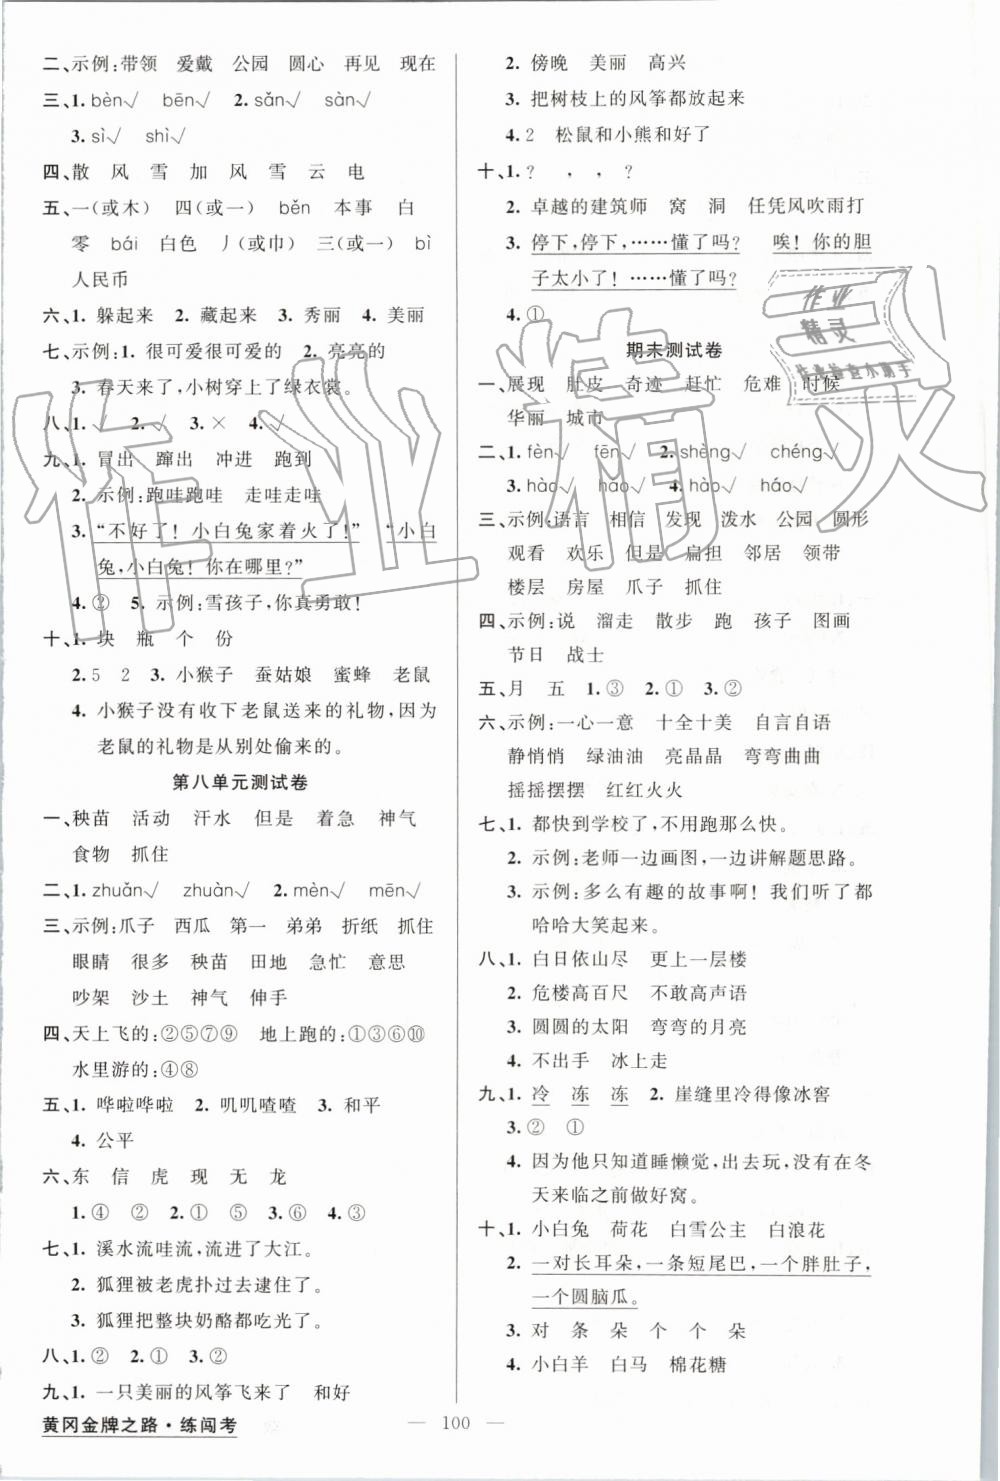 二、示例:带领 爱戴 公园 圆心 再见 现在
三、1. bèn√ bēn√ 2. sǎn√ sàn√
3. sì√ shì√
四、散 风 雪 加 风 雪 云 电
五、一(或木) 四(或一) běn 本事 白
零 bái 白色 丿(或巾) 三(或一) bì
人民币
六、1. 躲起来 2. 藏起来 3. 秀丽 4. 美丽
七、示例:1. 很可爱很可爱的 2. 亮亮的
3. 春天来了,小树穿上了绿衣裳。
八、1. √ 2. √ 3. × 4. √
九、1. 冒出 蹿出 冲进 跑到
2. 示例:跑哇跑哇 走哇走哇
3. “不好了！小白兔家着火了！” “小白
兔,小白兔！你在哪里?”
4. ② 5. 示例:雪孩子,你真勇敢！
十、1. 块 瓶 个 份
2. 5 2 3. 小猴子 蚕姑娘 蜜蜂 老鼠
4. 小猴子没有收下老鼠送来的礼物,因为
老鼠的礼物是从别处偷来的。
第八单元测试卷
一、秧苗 活动 汗水 但是 着急 神气
食物 抓住
二、1. zhuǎn√ zhuàn√ 2. mèn√ mēn√
三、示例:爪子 西瓜 第一 弟弟 折纸 抓住
眼睛 很多 秧苗 田地 急忙 意思
吵架 沙土 神气 伸手
四、天上飞的:②⑤⑦⑨ 地上跑的:①③⑥⑩
水里游的:④⑧
五、1. 哗啦哗啦 2. 叽叽喳喳 3. 和平
4. 公平
六、东 信 虎 现 无 龙
1. ④ ② 2. ① ⑤ 3. ⑥ 4. ③
七、1. 溪水流哇流,流进了大江。
2. 狐狸被老虎扑过去逮住了。
3. 狐狸把整块奶酪都吃光了。
八、1. ② 2. ① 3. ②
九、1. 一只美丽的风筝飞来了 和好
黄冈金牌之路·练闯考
2. 傍晚 美丽 高兴
3. 把树枝上的风筝都放起来
4. 2 松鼠和小熊和好了
十、1. ? , , ?
2. 卓越的建筑师 窝 洞 任凭风吹雨打
3. 停下,停下,……懂了吗? 唉！你的胆
子太小了！……懂了吗?
4. ①
作业
精灵
期末测试卷
一、展现 肚皮 奇迹 赶忙 危难 时候
华丽 城市
二、1. fèn√ fēn√ 2. shèng√ chéng√
3. hào√ háo√ 4. hào√ háo√
三、示例:语言 相信 发现 泼水 公园 圆形
观看 欢乐 但是 扁担 邻居 领带
楼层 房屋 爪子 抓住
四、示例:说 溜走 散步 跑 孩子 图画
节日 战士
五、月 五 1. ③ 2. ① 3. ②
六、示例:一心一意 十全十美 自言自语
静悄悄 绿油油 亮晶晶 弯弯曲曲
摇摇摆摆 红红火火
七、1. 都快到学校了,不用跑那么快。
2. 示例:老师一边画图,一边讲解题思路。
3. 示例:多么有趣的故事啊！我们听了都
哈哈大笑起来。
八、1. 白日依山尽 更上一层楼
2. 危楼高百尺 不敢高声语
3. 圆圆的太阳 弯弯的月亮
4. 不出手 冰上走
九、1. 冷 冻 冻 2. 崖缝里冷得像冰窖
3. ② ①
4. 因为他只知道睡懒觉,出去玩,没有在冬
天来临之前做好窝。
十、1. 小白兔 荷花 白雪公主 白浪花
2. 一对长耳朵,一条短尾巴,一个胖肚子,
一个圆脑瓜。
3. 对 条 朵 个 个 朵
4. 小白羊 白马 棉花糖
— 100 —
作业精灵